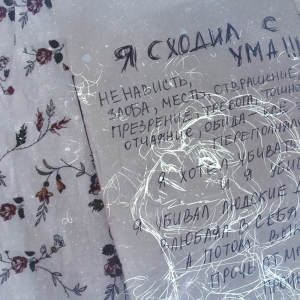 Я СХОДИЛ С
УМА!!!
НЕНАВИСТЬ,
ЗЛОБА, МЕСТЬ, ОТВРАЩЕНИЕ,
ПРЕЗРЕНИЕ, ТРЕВОГА, ТОШНО
ОТЧАЯНИЕ, ОБИДА ВСЕ
ПЕРЕПОЛНЯЛ
Я ХОТЕЛ УБИВАТЬ
И Я УБИ
Я УБИВАЛ ЛЮДСКИЕ
ВЛЮБЛЯЛ В СЕБЯ
А ПОТОМ
ПРОЧЬ ОТ